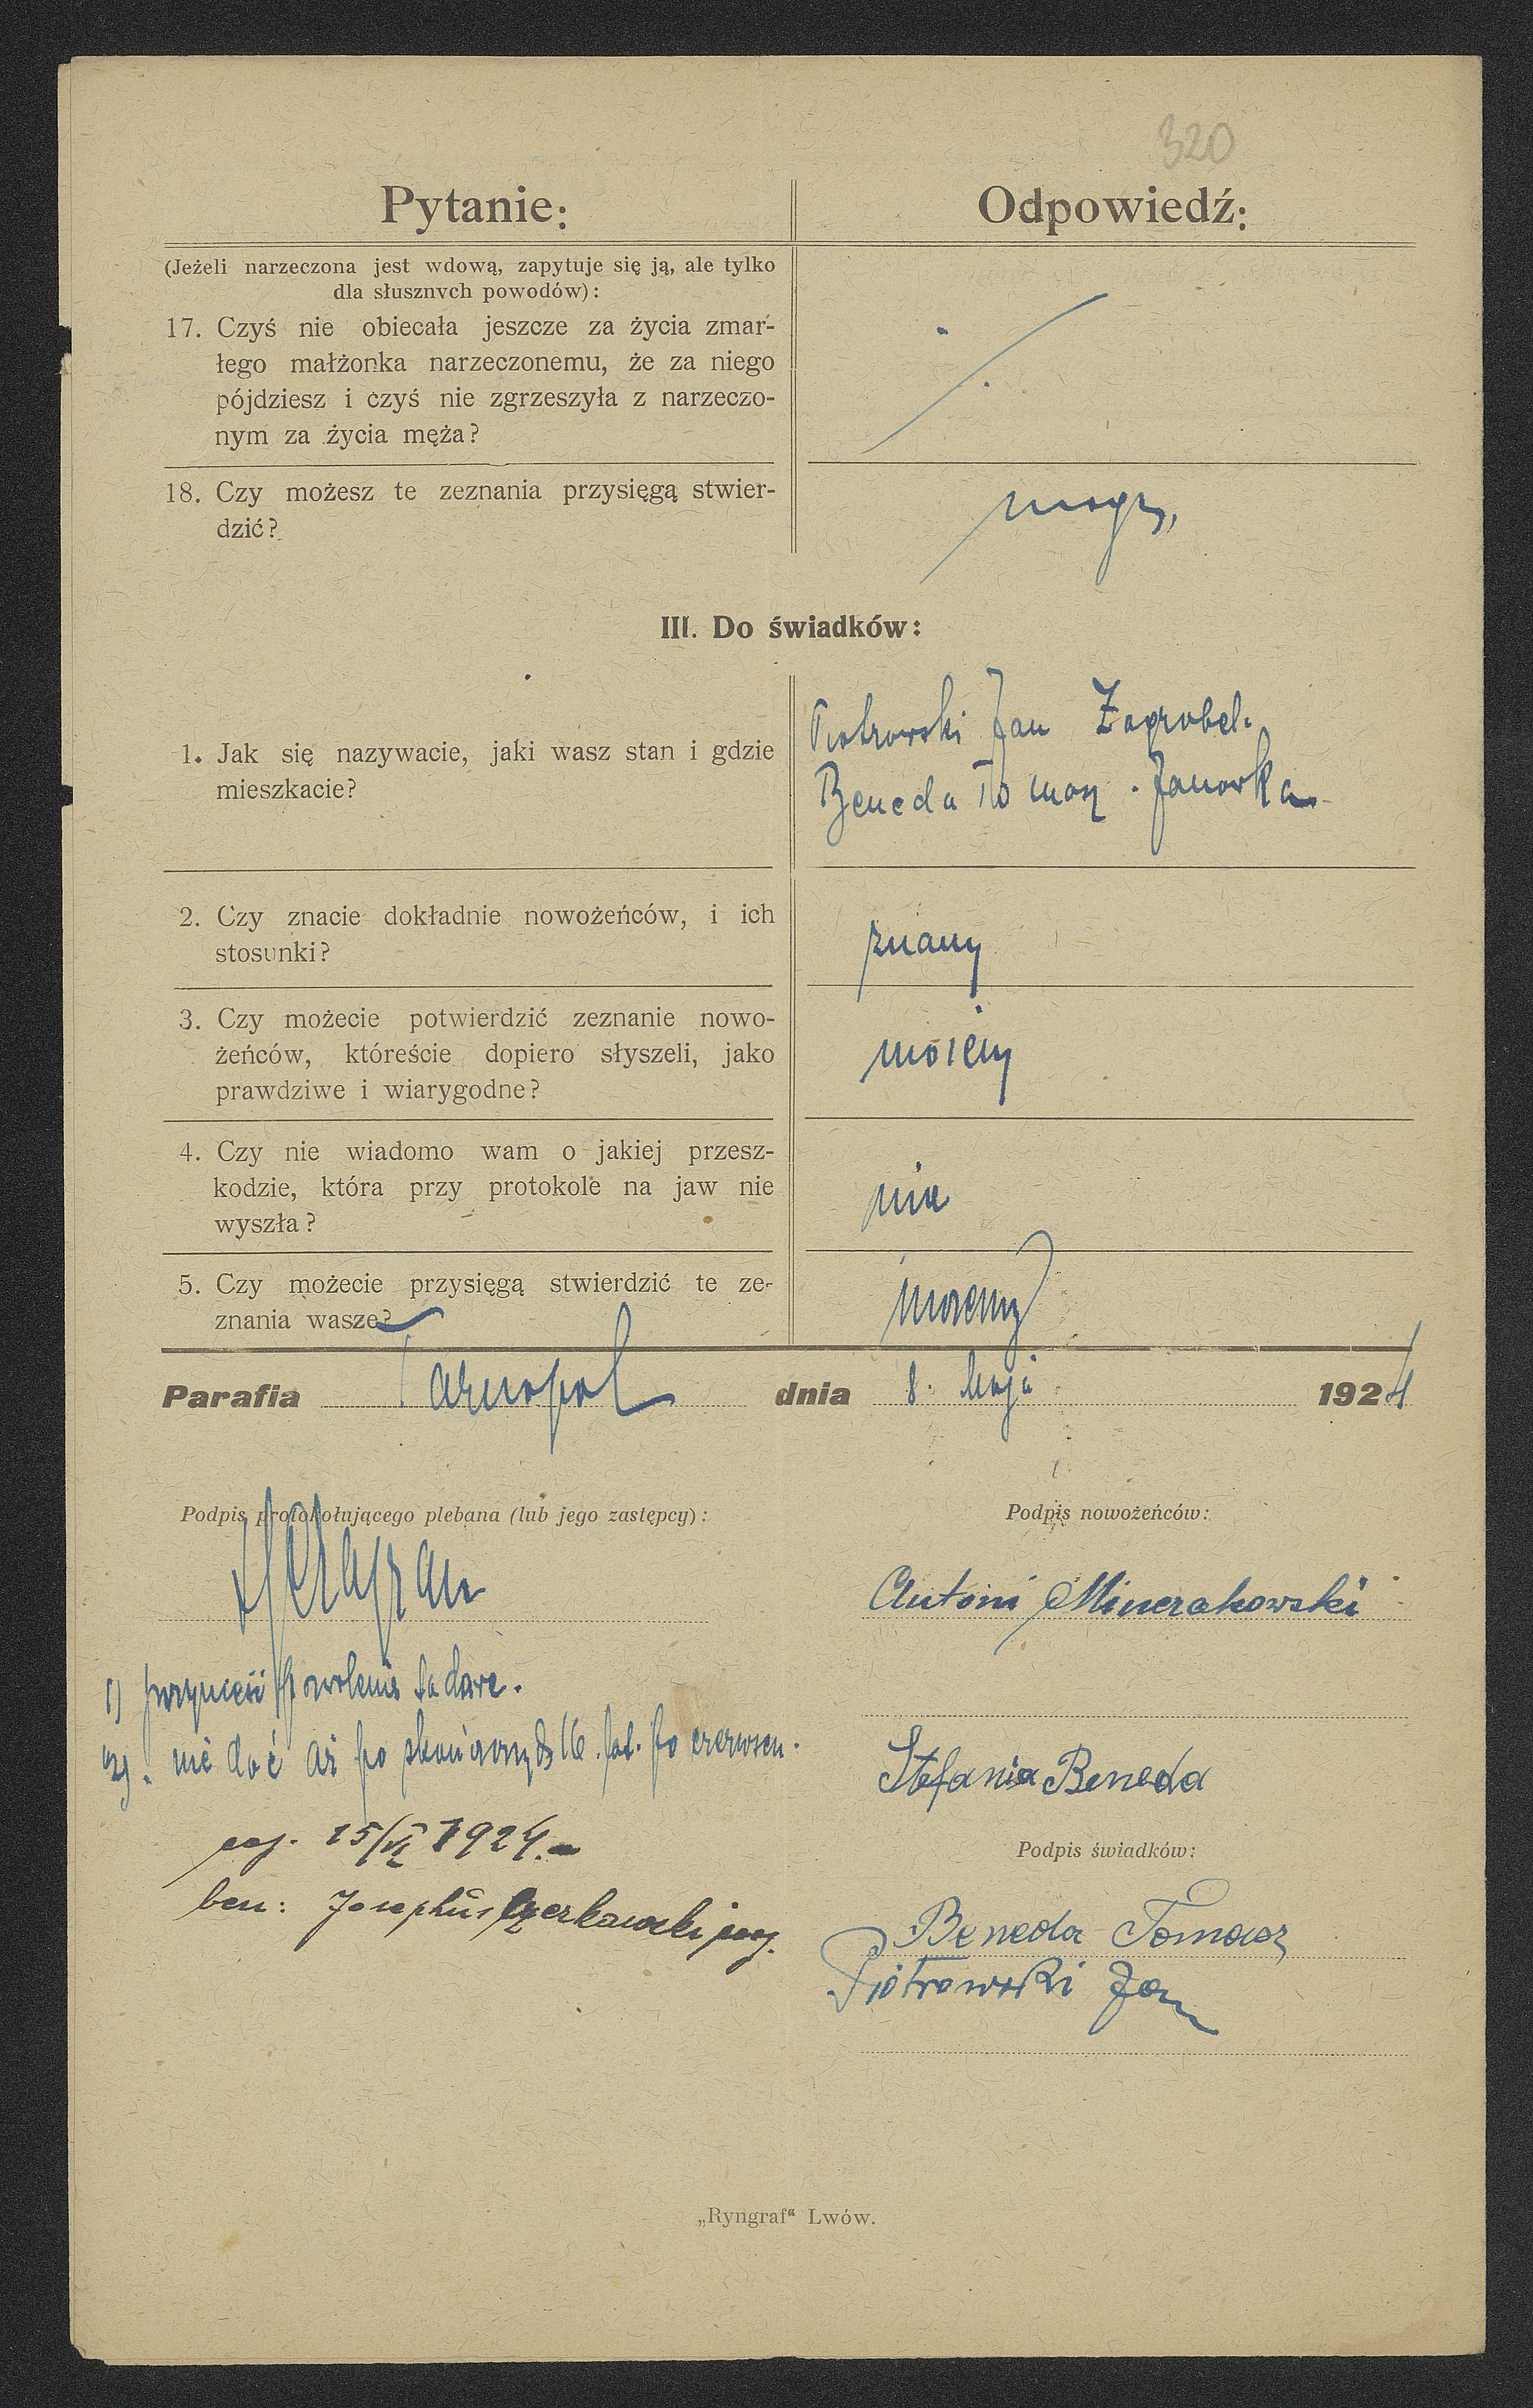 320
Pytanie: Odpowiedź:
(Jeżeli narzeczona jest wdową, zapytuje się ją, ale tylko
dla słusznych powodów):
17. Czyś nie obiecała jeszcze za życia zmar-
łego małżonka narzeczonemu, że za niego
pójdziesz i czyś nie zgrzeszyła z narzeczo-
nym za życia męża?
18. Czy możesz te zeznania przysięgą stwier-
dzić?
mogę,
III. Do świadków:
1. Jak się nazywacie, jaki wasz stan i gdzie
mieszkacie?
Piotrowski Jan Zagrobel.
Beneda Tomasz. Janówka
2. Czy znacie dokładnie nowożeńców, i ich
stosunki?
znamy
3. Czy możecie potwierdzić zeznanie nowo-
żeńców, któreście dopiero słyszeli, jako
prawdziwe i wiarygodne?
możemy
4. Czy nie wiadomo wam o jakiej przesz-
kodzie, która przy protokole na jaw nie
wyszła?
nie
5. Czy możecie przysięgą stwierdzić te ze-
znania wasze?
możemy
Parafia Tarnopol dnia 8. Maja 1924
Podpis protokołującego plebana (lub jego zastępcy):
Podpis nowożeńców:
Antoni Minerakowski
1) przynieść pozwolenie
2). nie dać aż po 16.
Stefania Beneda
15/VI 1924.
ben: Josephus Czerkawski
Podpis świadków:
Beneda Tomasz
Piotrowski Jan
„Ryngraf“ Lwów.